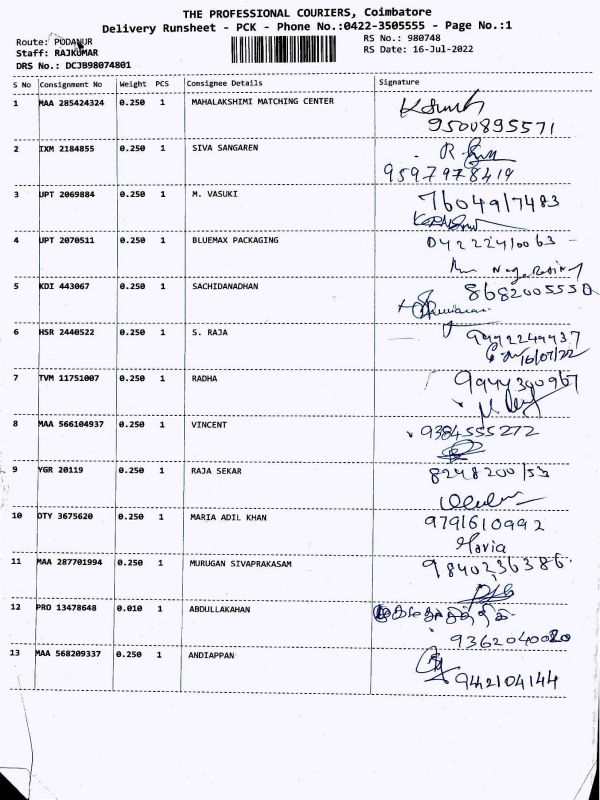 THE PROFESSIONAL COURIERS, Coimbatore
Delivery Runsheet - PCK - Phone No.:0422-3505555 - Page No.:1
Route: PODANUR RS No.: 980748
Staff: RAJKUMAR RS Date: 16-Jul-2022
DRS No.: DCJB98074801
S No Consignment No Weight PCS Consignee Details Signature
1 MAA 285424324 0.250 1 MAHALAKSHIMI MATCHING CENTER
9500895571
2 IXM 2184855 0.250 1 SIVA SANGAREN
9597978419
3 UPT 2069884 0.250 1 M. VASUKI 7604917483
4 UPT 2070511 0.250 1 BLUEMAX PACKAGING 04222410063
5 KDI 443067 0.250 1 SACHIDANADHAN 8682005550
6 HSR 2440522 0.250 1 S. RAJA
16/07/22
7 TVM 11751007 0.250 1 RADHA 9944390967
8 MAA 566104937 0.250 1 VINCENT 9384555272
9 YGR 20119 0.250 1 RAJA SEKAR 8248200153
10 OTY 3675620 0.250 1 MARIA ADIL KHAN 9791610992
Maria
11 MAA 287701994 0.250 1 MURUGAN SIVAPRAKASAM 9840236386
12 PRO 13478648 0.010 1 ABDULLAKAHAN
9362040020
13 MAA 568209337 0.250 1 ANDIAPPAN
942104144